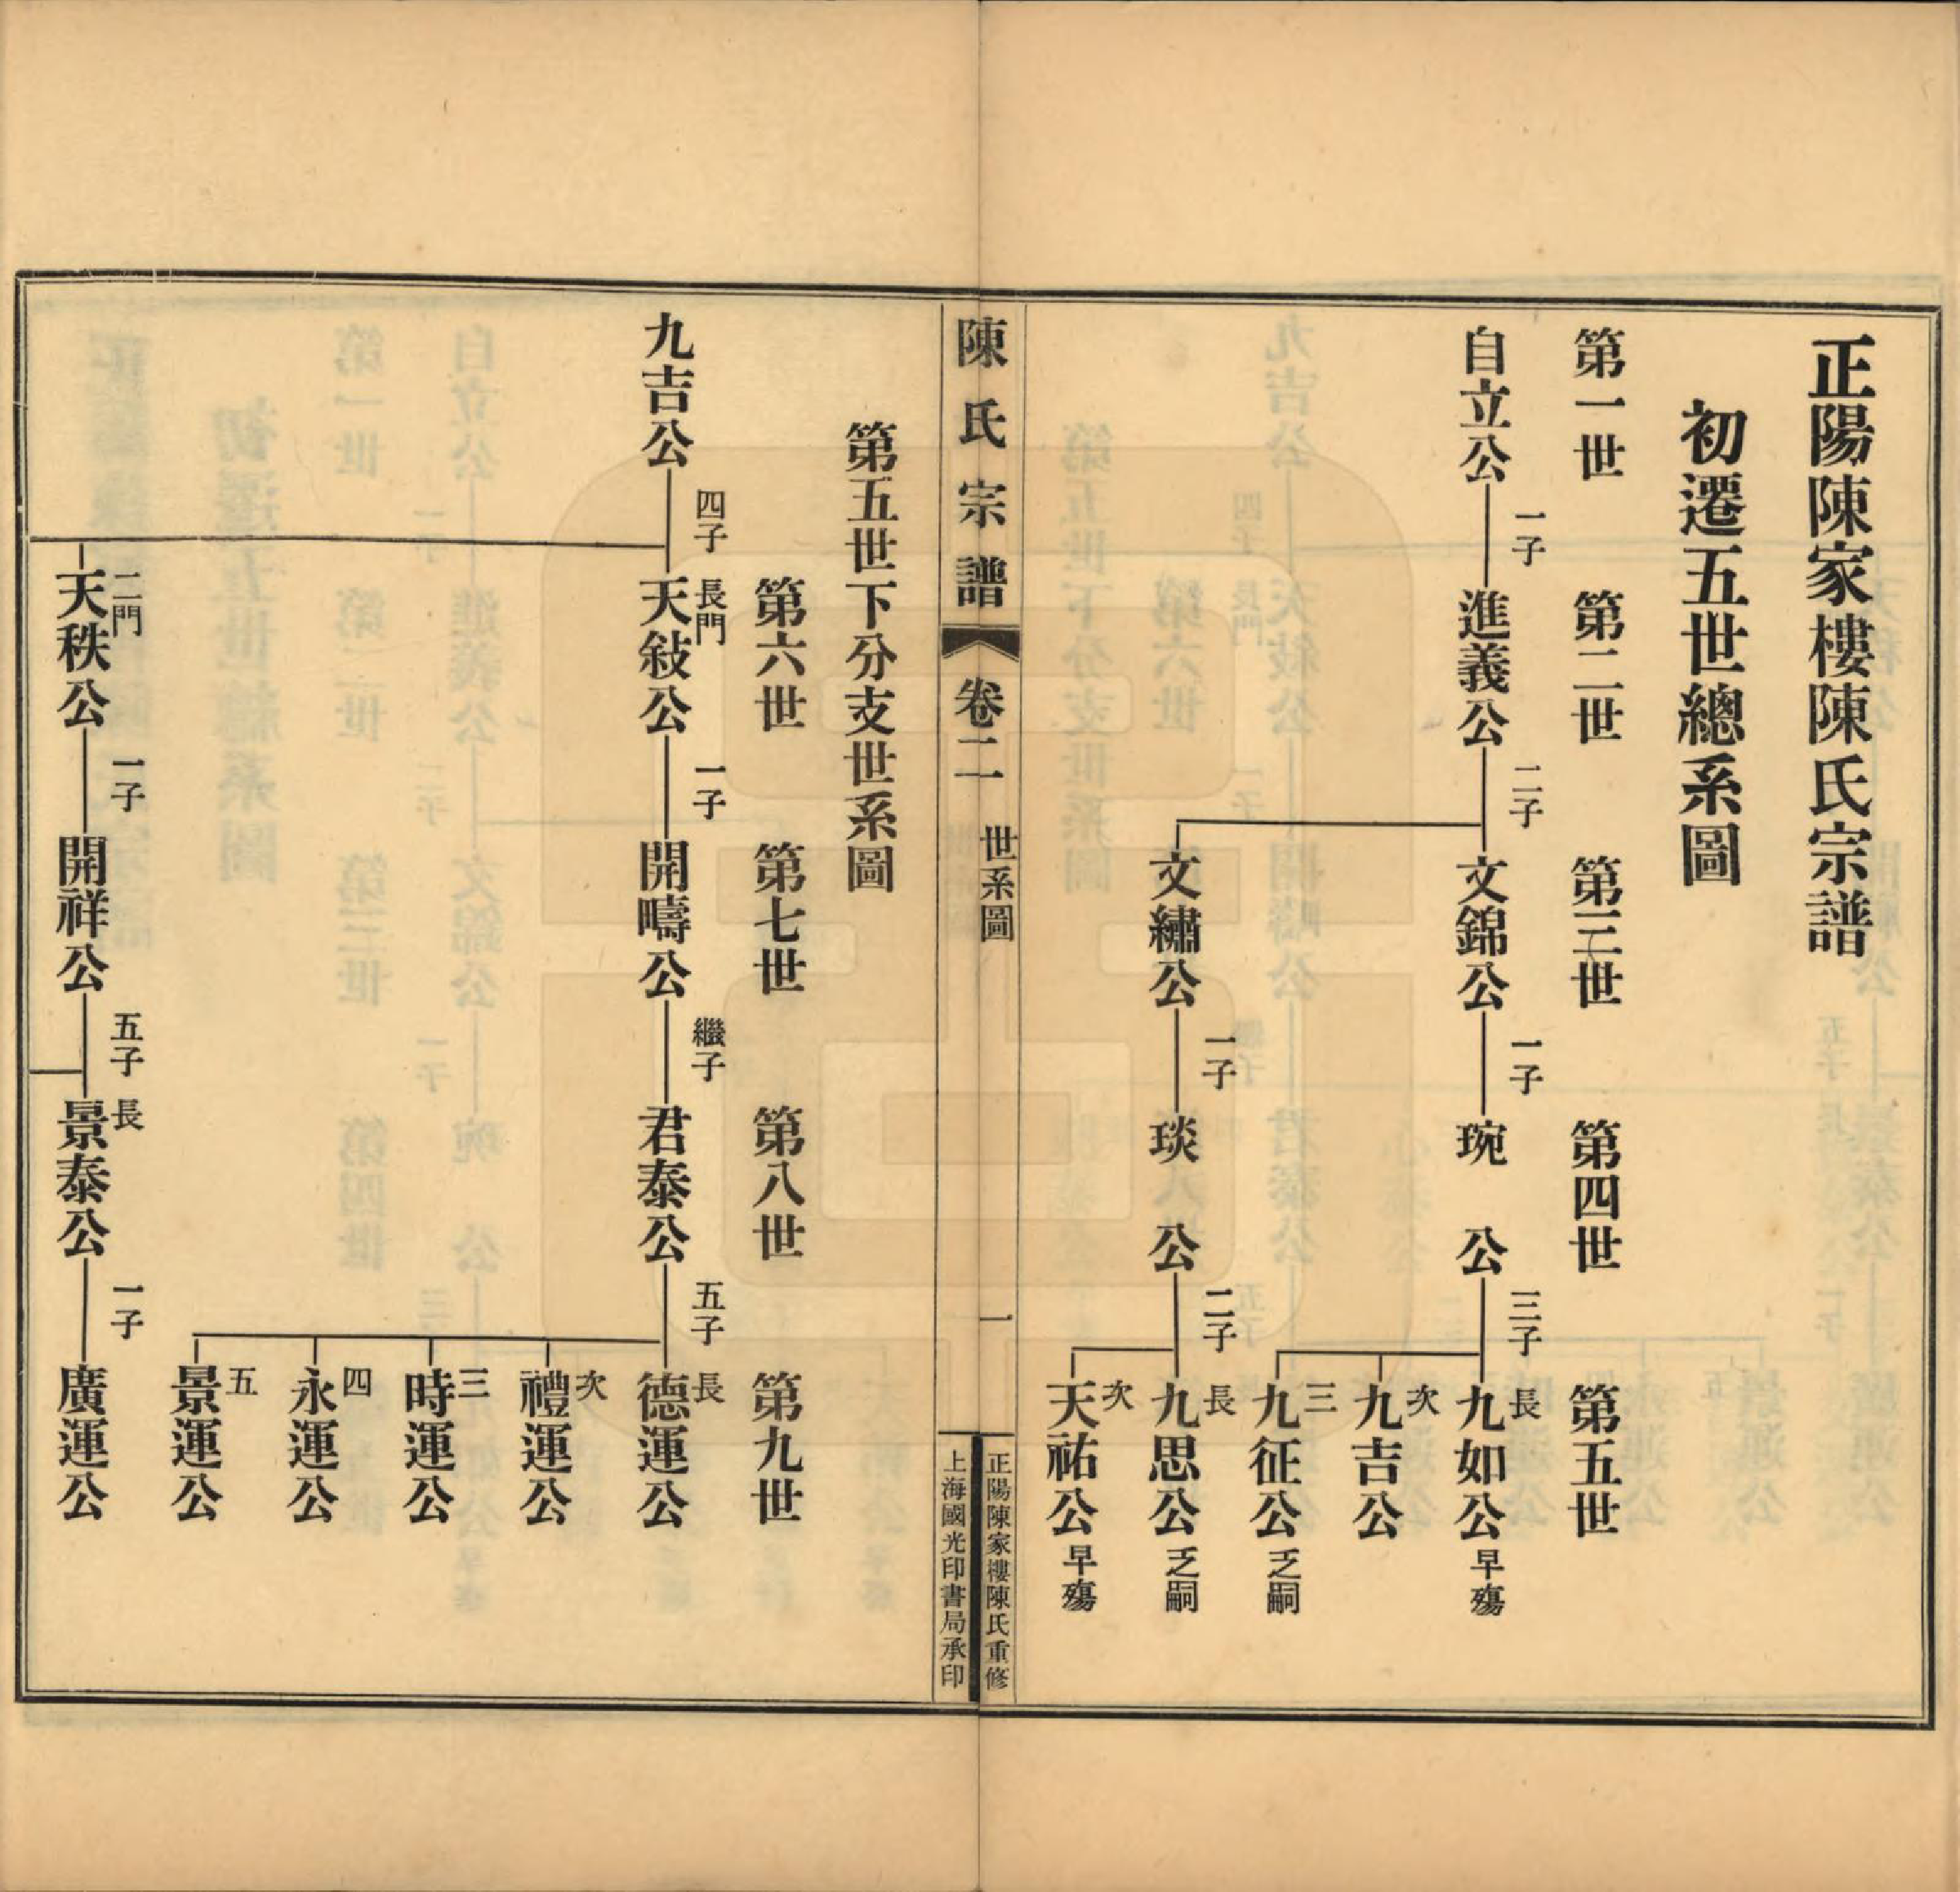 正陽陳家樓陳氏宗譜
初遷五世總系圖
第一世
第二世
第三世
第四世
第五世
自立公
一子
進義公
二子
文錦公
一子
琬公
三子
長
九如公
早殤
次
九吉公
三
九征公
乏嗣
文繡公
一子
琰公
二子
長
九思公
乏嗣
次
天祐公
早殤
陳氏宗譜
卷二
世系圖
一
正陽陳家樓陳氏重修
上海國光印書局承印
第五世下分支世系圖
第六世
第七世
第八世
第九世
九吉公
四子
長門
天敍公
一子
開疇公
繼子
君泰公
五子
長
德運公
次
禮運公
三
時運公
四
永運公
五
景運公
二門
天秩公
一子
開祥公
五子
長
景泰公
一子
廣運公